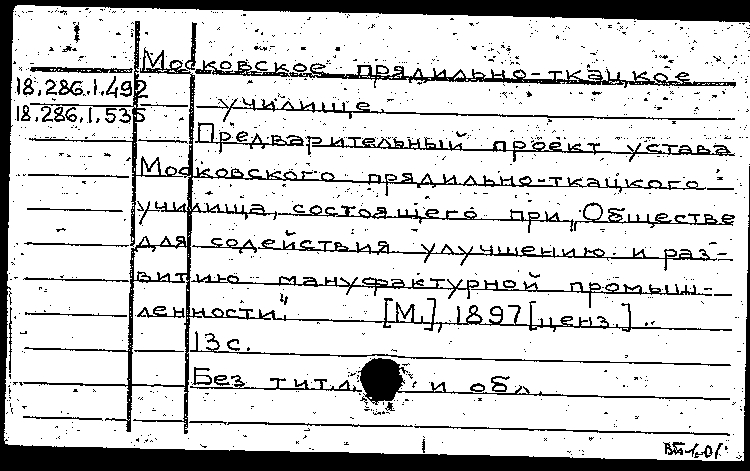 Московское прядильно-ткацкое
18.286.1.492
училище.
18.286.1.535
Предварительный проект устава
Московского прядильно-ткацкого
училища, состоящего при „Обществе
для содействия улучшению и раз-
витию мануфактурной промыш-
ленности".    [М.], 1897 [ценз.].
13 с.
Без тит.л. и обл.